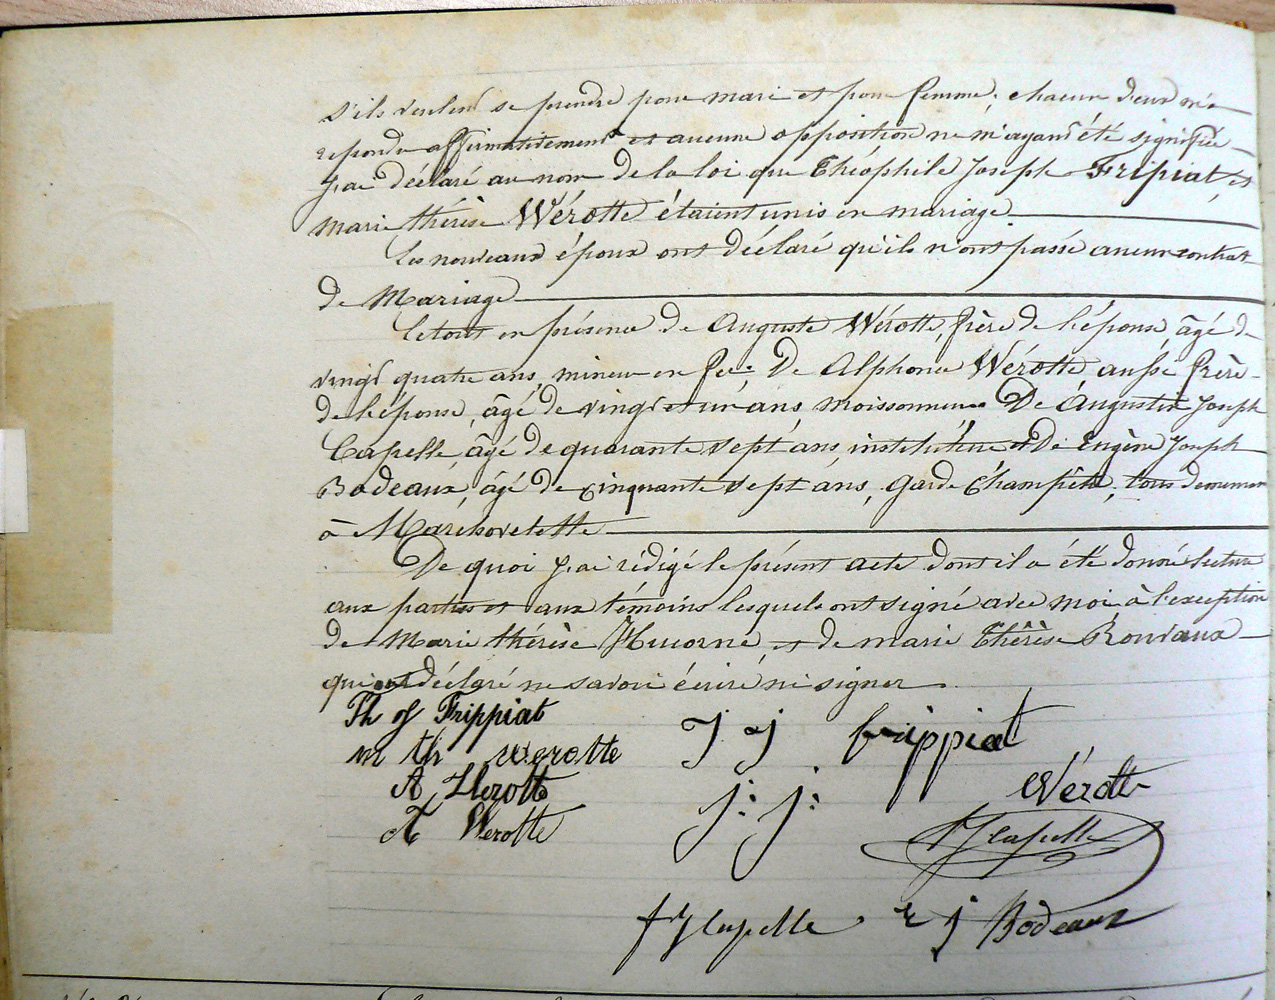 s'ils veulent se prendre pour mari et pour femme; chacun d'eux m'a
repondu affirmativement et aucune opposition ne m'ayant été signifiée
J'ai déclaré au nom de la loi que Théophile Joseph Fripiat, et
Marie thérèse Wérotte étaient unis en mariage
Les nouveaux époux ont déclaré qu'ils n'ont passé aucun contrat
de Mariage
Le tout en présence de Auguste Wérotte, frère de l'épouse, âgé de
vingt quatre ans, mineur en fer; De Alphonse Wérotte aussi frère
de l'épouse, âgé de vingt et un ans, moissonneur De Augustin Joseph
Capelle âgé de quarante sept ans, instituteur et De Eugène Joseph
Bodeaux, âgé de cinquante sept ans, Garde Champêtre, tous demeurant
à Marchovelette
De quoi J'ai rédigé le présent acte dont il a été donné lecture
aux parties et aux témoins lesquels ont signé avec moi, à l'exception
de Marie thérèse Hucorne, et de marie Thérèse Rouvaux
qui ont déclaré ne savoir écrire ni signer
Th of Frippiat
J J frippiat
m th werotte
A Werotte
j: j: Wérotte
A Werotte
AJ Capelle
AJ Capelle
E J Bodeaux